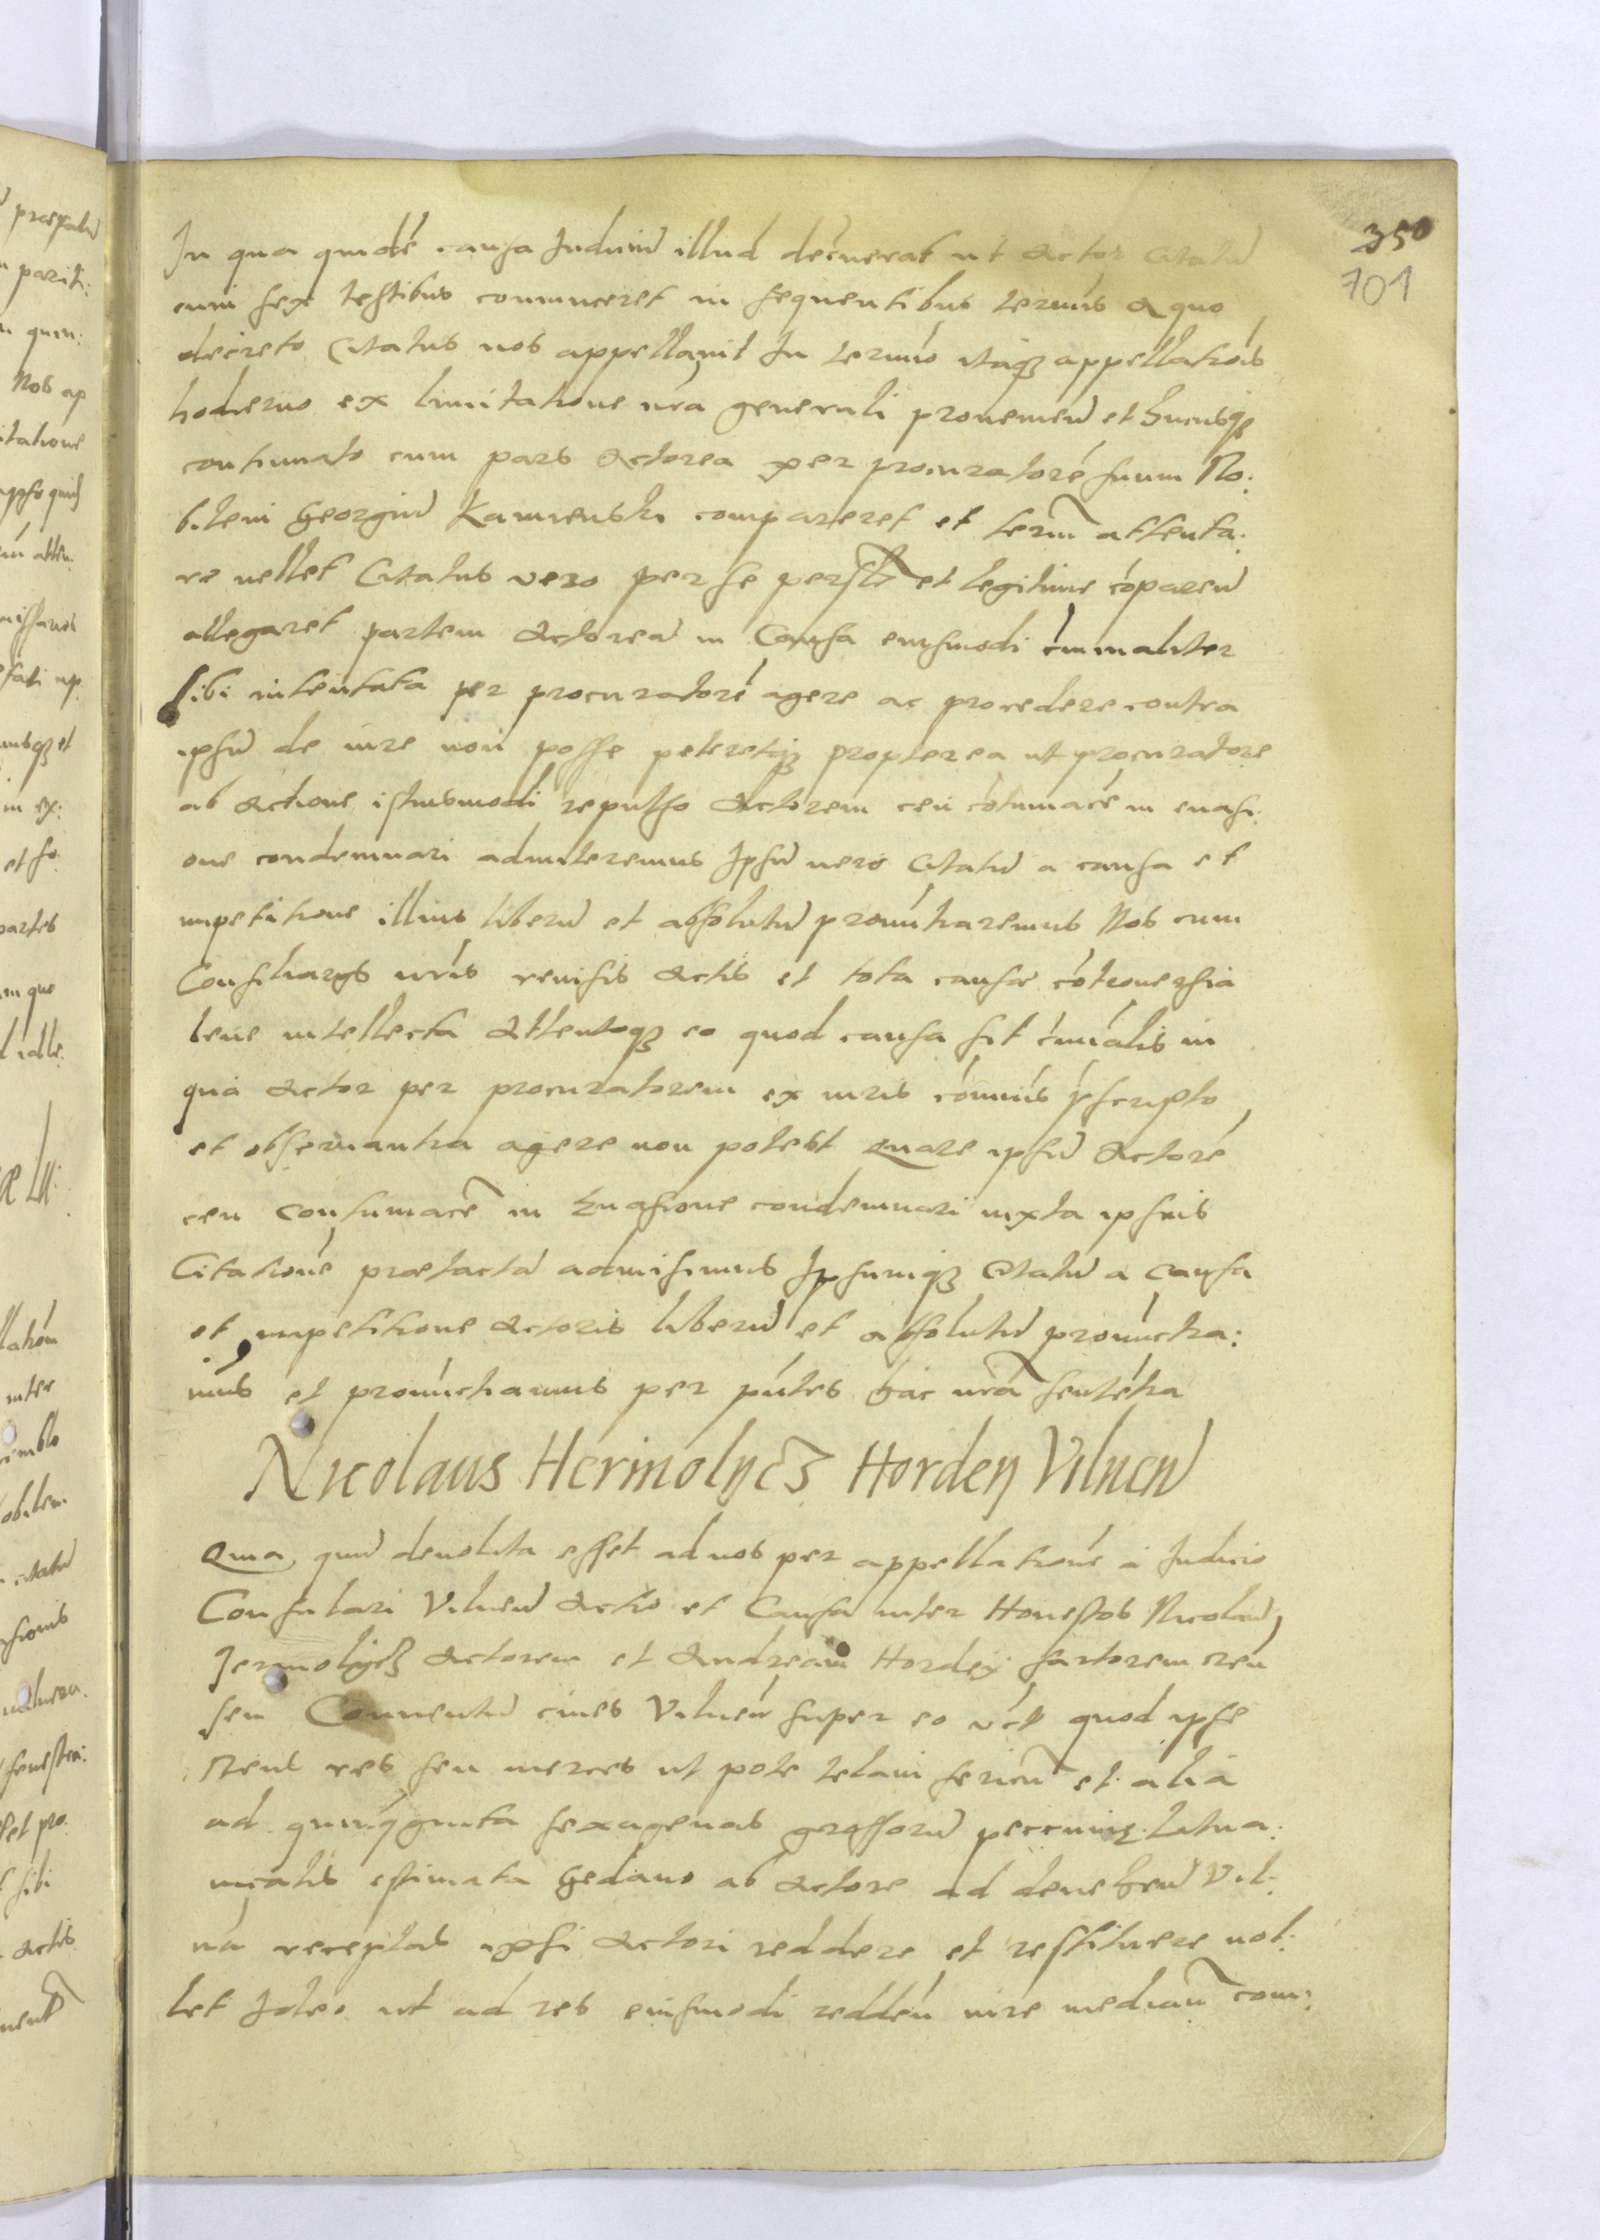 350
701
In qua quidé causa Iudiciũ illud decreuerat ut Actor Citatũ
cum sex testibus conuinceret in sequentibus terminis A quo
decreto Citatus nos appellauit In termino itaq; appellationis
hodierno ex limitatione nra generali proueniente et hucusq;
continuato cum pars Actorea per procuratoré suum No:
bilem Georgiũ Kamienski compareret et termĩ attenta:
re uellet Citatus vero per se personaliter et legitime cóparens
allegaret partem Actoreã in Causa eiusmodi criminaliter
sibi intentata per procuratoré agere ac procedere contra
ipsũ de iure non posse peteretq; propterea ut procuratore
ab Actione istiusmodi repulso Actorem ceu cótumacé in euasi:
one condemnari admitteremus Ipsũ uero Citatũ a causa et
impetitione illius liberũ et absolutũ pronúciaremus Nos cum
Consiliarijs nris reuisis Actis et tota causæ cótrouersia
bene intellecta Attentoq; eo quod causa sit criminalis in
qua Actor per procuratorem ex iuris cómunis pscripto
et obseruantia agere non potest Quare ipsũ Actoré
ceu Contumacẽ in Euasione condemnari iuxta ipsius
Citationé prætactã admisimus Ipsumq; Citatũ a Causa
et impetitione Actoris liberũ et absolutũ pronúcia:
mus et pronúciamus per pntes hac nrã senténtia
Nicolaus Hermolycz Hordey Vilnen
Quia quũ deuoluta esset ad nos per appellationé a Iudicio
Consulari Vilneñ Actio et Causa inter Honestos Nicolaũ
Jermolycz Actorem et Andream Hordey sartorem reũ
seu Conuentũ ciues Vilneñ super eo uclt quod ipse
reus res seu merces ut pote telam sericeã et alia
ad quinquaginta sexagenas grossorũ pecuniæ Litua:
nicalis estimata Gedano ab Actore ad deuehendũ Vil:
nã receptas ipsi Actori reddere et restituere nol:
let Ideo ut ad res eiusmodi reddeñ iure medianĩ com: